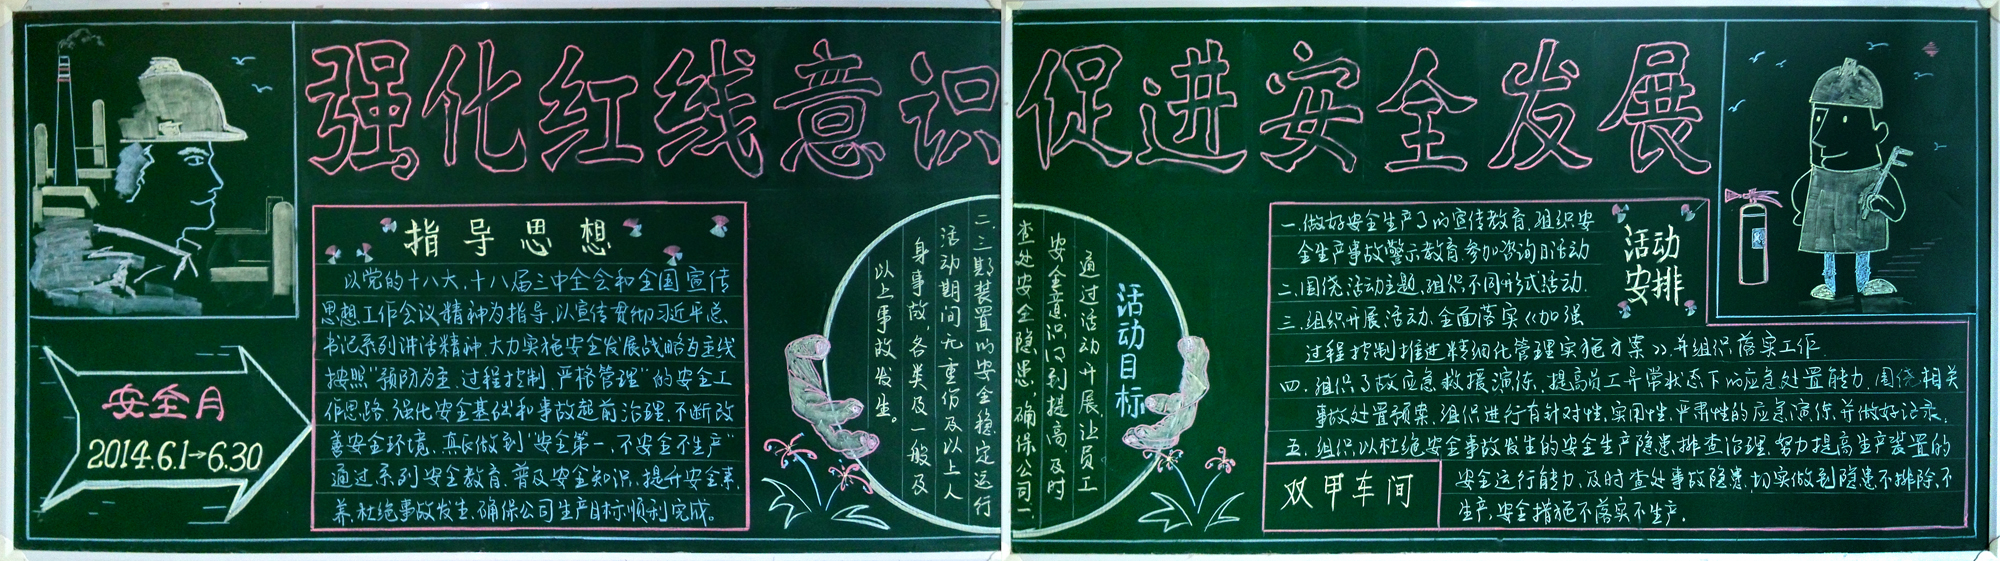 强化红线意识
促进安全发展
安全月
2014.6.1→6.30
指导思想
以党的十八大、十八届三中全会和全国宣传
思想工作会议精神为指导,以宣传贯彻习近平总
书记系列讲话精神,大力实施安全发展战略为主线
按照“预防为主、过程控制、严格管理”的安全工
作思路,强化安全基础和事故超前治理,不断改
善安全环境,真正做到“安全第一,不安全不生产”
通过系列安全教育,普及安全知识,提升安全素
养,杜绝事故发生,确保公司生产目标顺利完成。
活动目标
通过活动开展,让员工
安全意识得到提高,及时
查处安全隐患,确保公司一
二、三期装置的安全稳定运行
活动期间无重伤及以上人
身事故,各类及一般及
以上事故发生。
活动
安排
一.做好安全生产了的宣传教育,组织安
全生产事故警示教育,参加咨询日活动
二.围绕活动主题,组织不同形式活动.
三.组织开展活动,全面落实《加强
过程控制推进精细化管理实施方案》,并组织落实工作.
四.组织了故应急救援演练,提高员工异常状态下的应急处置能力,围绕相关
事故处置预案,组织进行有针对性,实用性,严肃性的应急演练,并做好记录.
五.组织以杜绝安全事故发生的安全生产隐患排查治理,努力提高生产装置的
安全运行能力,及时查处事故隐患,切实做到隐患不排除,不
生产,安全措施不落实不生产.
双甲车间